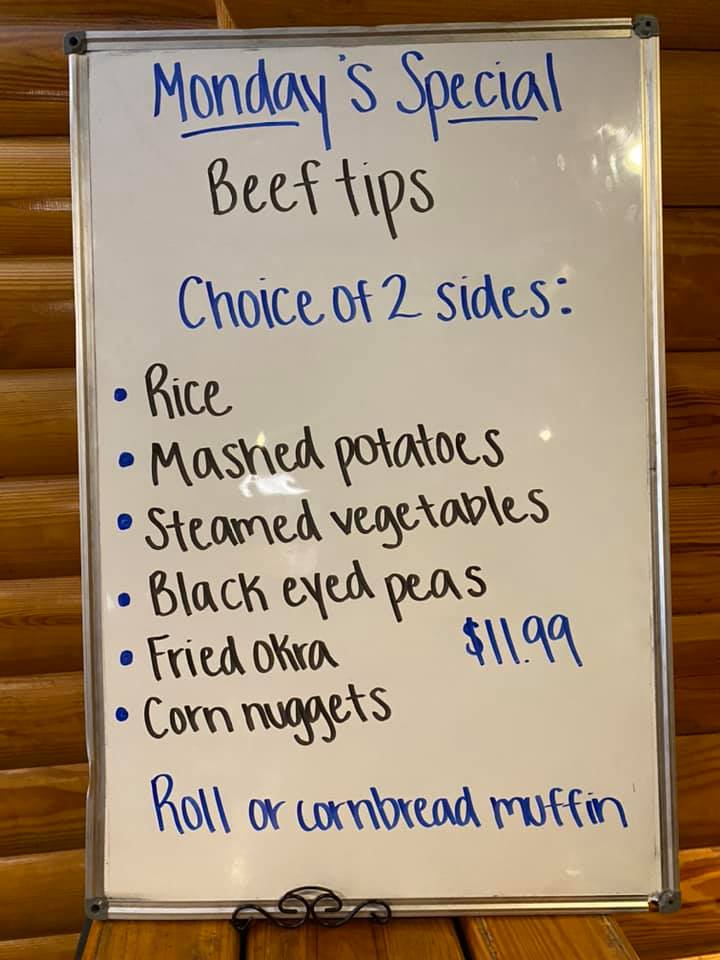 Monday's Special
Beef tips
Choice of 2 sides:
• Rice
• Mashed potatoes
• Steamed vegetables
• Black eyed peas
• Fried okra $11.99
• Corn nuggets
Roll or cornbread muffin